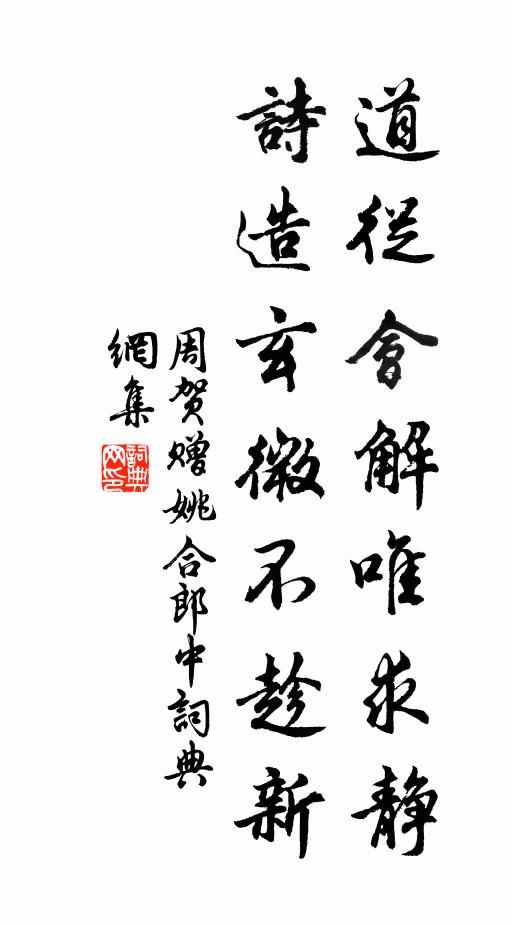 道從會解唯求靜
詩造玄微不趁新
周贺赠姚合郎中詞典
網集
詞典
网印